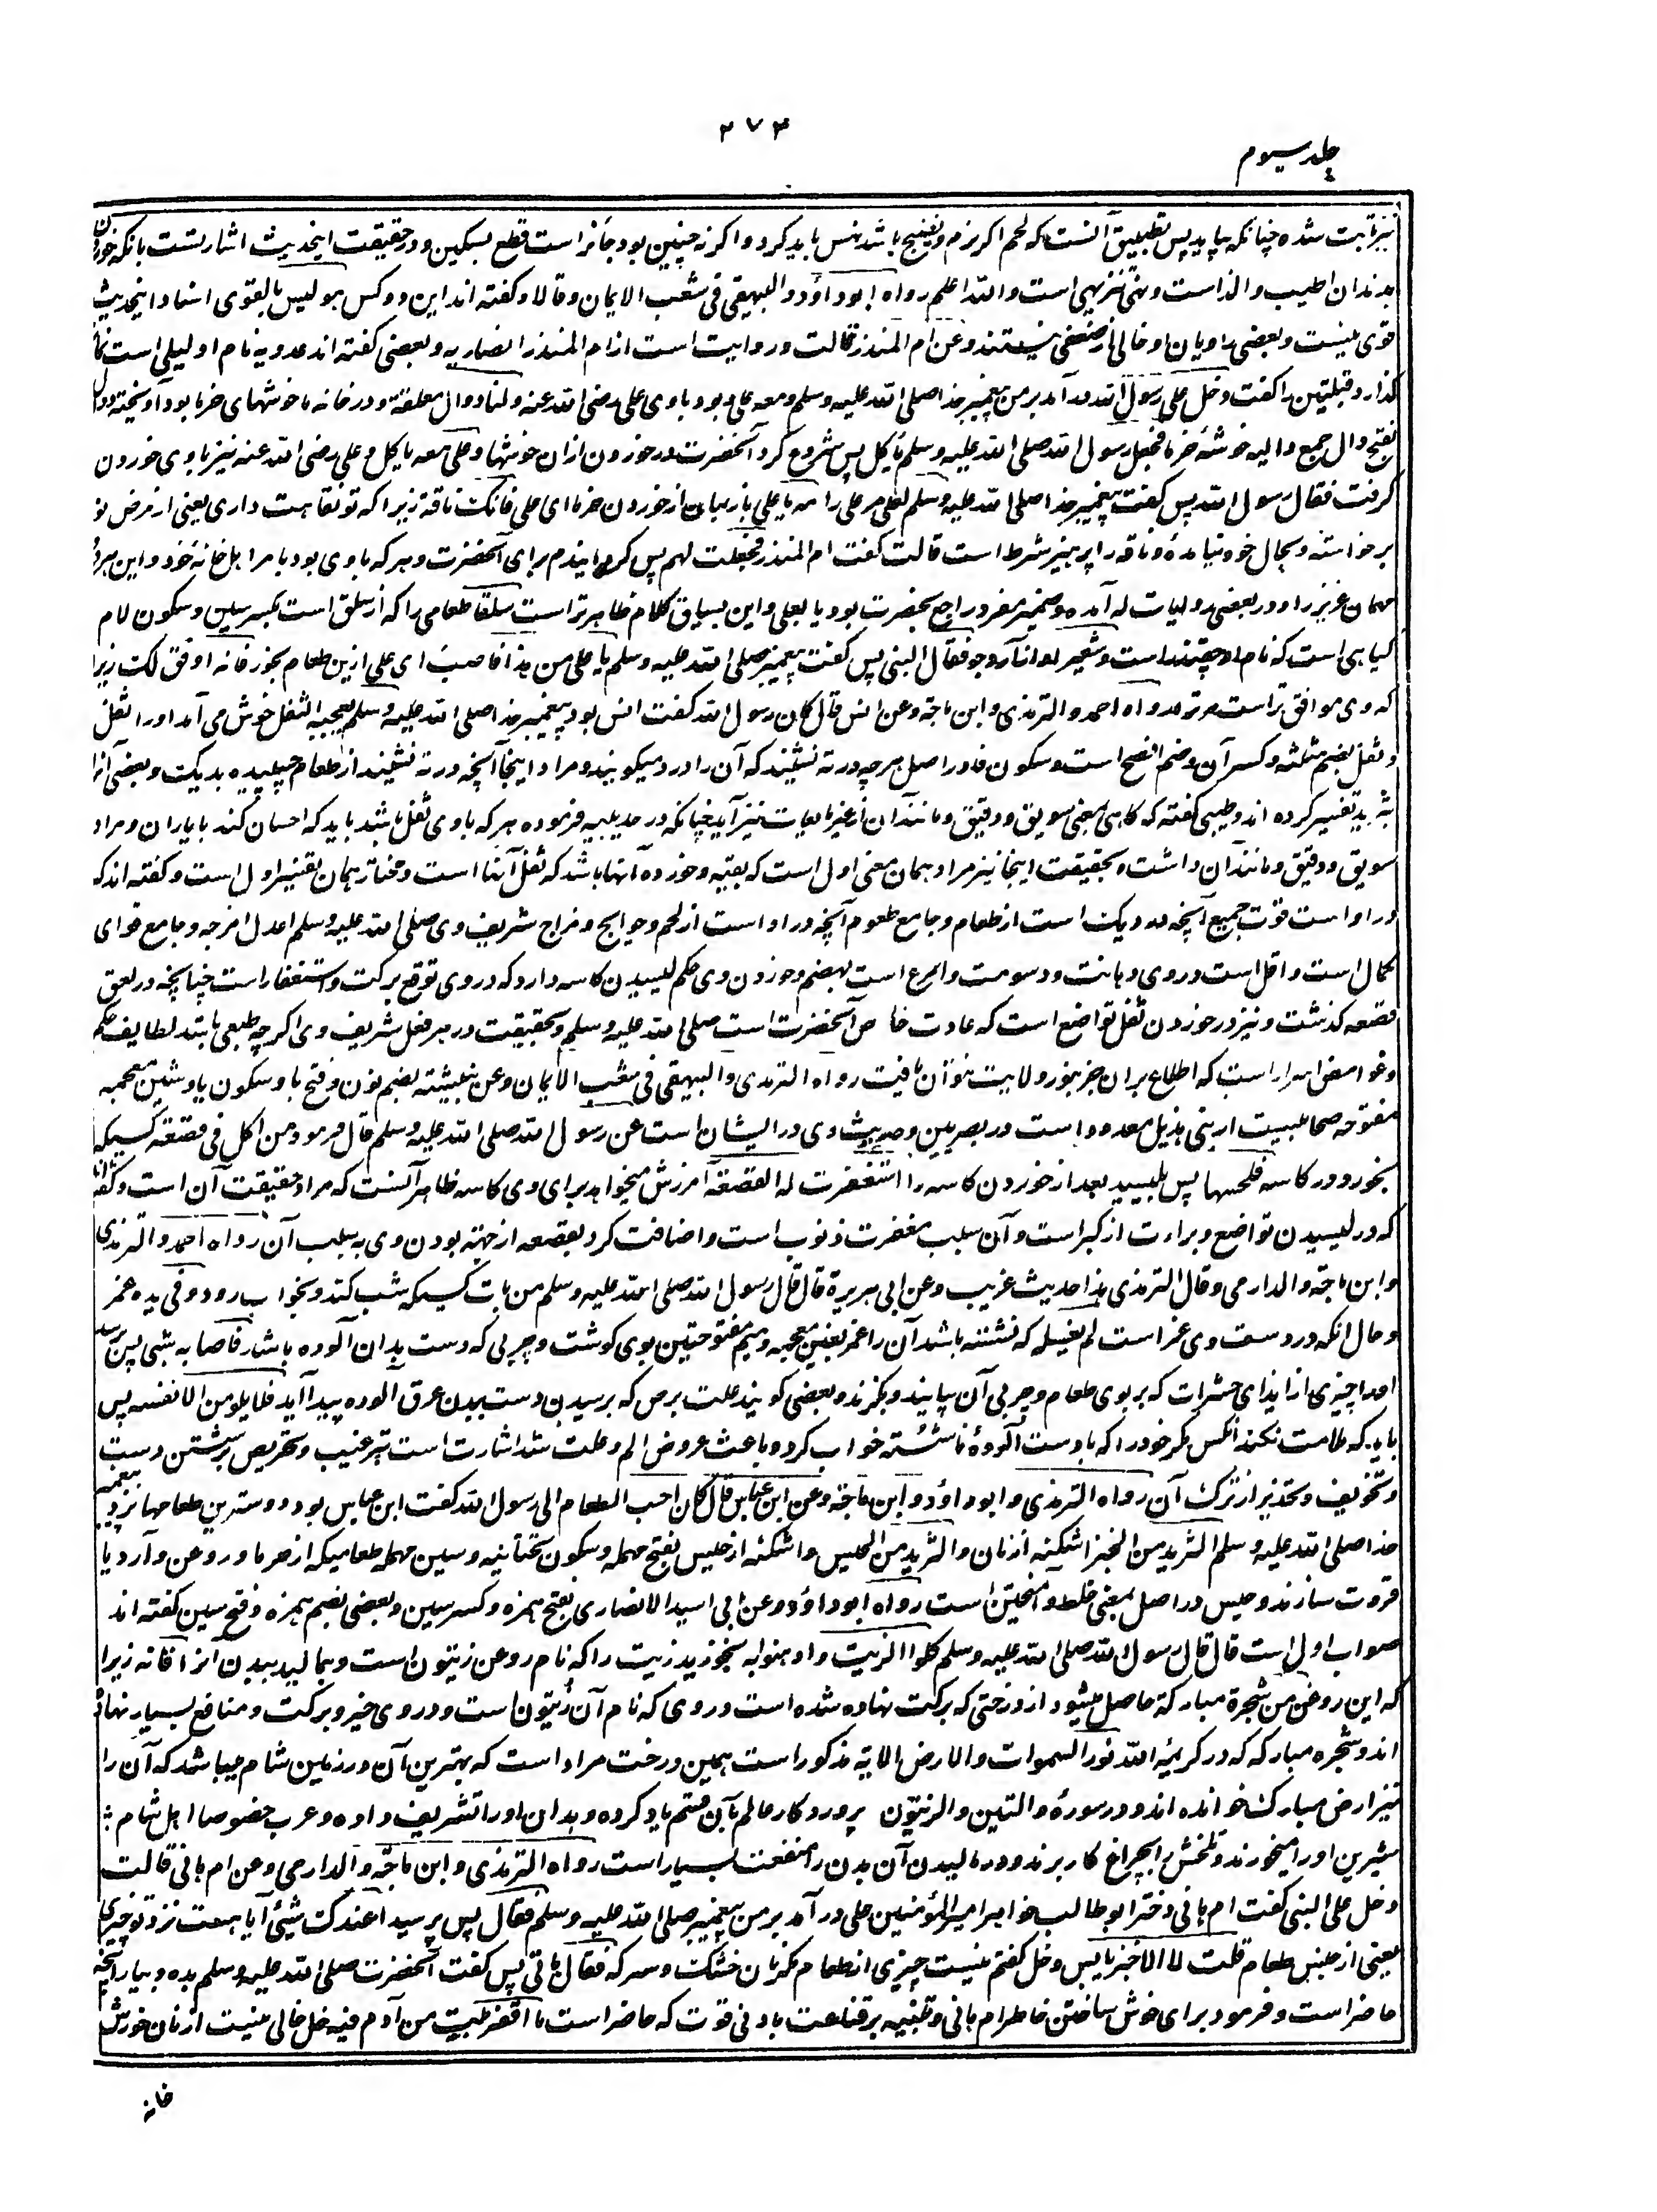 ۲۷۳
جلد سیوم
نیز ثابت شده چنانکه بیاید پس تطبیق آنست که لحم اکر نرم و نضیج باشد نهس باید کرد و اکر نه چنین بود جائز است قطع بسکین و در حقیقت اینحدیث اشارتست بانکه خوردن
بدندان اطیب و الذ است و نهی تنزیهی است و الله اعلم رواه ابو داؤد و البیهقی فی شعب الایمان و قالا و کفته اند این دو کس هو لیس بالقوی اسناد اینحدیث
قوی نیست و بعضی راویان او خالی از ضعفی نیستند و عن ام المنذر قالت و روایت است از ام المنذر انصاریه و بعضی کفته اند عدویه نام او لیلی است نماز
کذارد قبلتین را کفت دخل علی رسول الله در آمد بر من پیغمبر خدا صلی الله علیه وسلم و معه علی و بود با وی علی رضی الله عنه و لنا دوال معلقة و در خانه ما خوشهای خرما بود آویخته دوال
بفتح دال جمع دالیه خوشه خرما فجعل رسول الله صلی الله علیه وسلم یأکل پس شروع کرد آنحضرت در خوردن ازان خوشها و علی معه یاکل و علی رضی الله عنه نیز با وی خوردن
کرفت فقال رسول الله پس کفت پیغمبر خدا صلی الله علیه وسلم لعلی مر علی را مه یا علی باز بمان از خوردن خرما ای علی فانک ناقه زیرا که تو نقاهت داری یعنی از مرض نو
برخواسته و بحال خود نیامدهٔ و ناقه را پرهیز شرط است قالت کفت ام المنذر فجعلت لهم پس کردانیدم برای آنحضرت و هر که با وی بود یا مر اهل خانهٔ خود و این
مهمان عزیز را و در بعضی روایات له آمده و ضمیر مفرد راجع بحضرت بود یا بعلی و این بسیاق کلام ظاهرتر است سلقا طعامی را که از سلق است بکسر سین و سکون لام
کیاهی است که نام او چقندر است و شعیرا و انار جو فقال النبی پس کفت پیغمبر صلی الله علیه وسلم یا علی من هذا فاصب ای علی ازین طعام بخور فانه اوفق لک زیرا
که وی موافق تر است مر ترا رواه احمد و الترمذی و ابن ماجة و عن انس قال کان رسول الله کفت انس بود پیغمبر خدا صلی الله علیه وسلم یعجبه الثفل خوش می آمد او را ثفل
و ثفل بضم مثلثه و کسر آن و ضم افصح است و سکون فا در اصل هر چه در ته نشیند که آن را درد میکویند و مراد اینجا آنچه در ته نشیند از طعام چپیده بدیک و بعضی آنرا
بثرید تفسیر کرده اند و طیبی کفته که کاهی بمعنی سویق و دقیق و مانند آن از غیر مایعات نیز آید چنانکه در حدیبیه فرموده هر که با وی ثفل باشد باید که احسان کند با یاران و مراد
سویق و دقیق و مانند آن داشت و بحقیقت اینجا نیز مراد همان معنی اول است که بقیه و خورده آنها باشد که ثفل آنها است و مختار همان تفسیر اول است و کفته اند که
در او است قوت جمیع آنچه در دیک است از طعام و جامع طعوم آنچه در او است از لحم و حوایج و مزاج شریف وی صلی الله علیه وسلم اعدل امزجه و جامع قوای
کمال است و اقل است در وی دهانت و دسومت و اسرع است بهضم و خوردن وی حکم لیسیدن کاسه دارد که در وی توقع برکت و استغفار است چنانچه در لعق
قصعه کذشت و نیز در خوردن ثفل تواضع است که عادت خاص آنحضرت است صلی الله علیه وسلم و بحقیقت در هر فعل شریف وی اکر چه طبعی باشد لطایف حکم
و غوامض اسرار است که اطلاع بران جز بنور ولایت نتوان یافت رواه الترمذی و البیهقی فی شعب الایمان و عن نبیشة بضم نون و فتح با و سکون یا و شین معجمه
مفتوحه صحابیست از بنی هذیل معدود است در بصریین و حدیث وی در ایشان است عن رسول الله صلی الله علیه وسلم قال فرمود من اکل فی قصعة کسیکه
بخورد در کاسه فلحسها پس بلیسید بعد از خوردن کاسه را استغفرت له القصعة آمرزش میخواهد برای وی کاسه ظاهر آنست که مراد حقیقت آن است و کفته اند
که در لیسیدن تواضع و براءت از کبر است و آن سبب مغفرت ذنوب است و اضافت کرد بقصعه از جهة بودن وی به سبب آن رواه احمد و الترمذی
و ابن ماجة و الدارمی و قال الترمذی هذا حدیث غریب و عن ابی هریرة قال قال رسول الله صلی الله علیه وسلم من بات کسیکه شب کند و بخواب رود و فی یده غمر
و حال انکه در دست وی غمر است لم یغسله که نشسته باشد آن را غمر بغین معجمه و میم مفتوحتین بوی کوشت و چربی که دست بدان آلوده باشد فاصابه شیٔ پس رسد
او را چیزی از ایذای حشرات که بر بوی طعام و چربی آن بیایند و بکزند و بعضی کویند علت برص که برسیدن دست ببدن عرق الوده پیدا آید فلا یلومن الا نفسه پس
باید که ملامت نکند آنکس مکر خود را که با دست آلودهٔ ناشسته خواب کرد و باعث عروض الم و علت شد اشارت است بترغیب و تحریص بر شستن دست
و تخویف و تحذیر از ترک آن رواه الترمذی و ابو داؤد و ابن ماجة و عن ابن عباس قال کان احب الطعام الی رسول الله کفت ابن عباس بود دوسترین طعامها نزد پیغمبر
خدا صلی الله علیه وسلم الثرید من الخبز اشکنه از نان و الثرید من الحیس و اشکنه از حیس بفتح مهمله و سکون تحتانیه و سین مهمله طعامیکه از خرما و روغن و آرد یا
قروت سازند و حیس در اصل بمعنی خلط و آمیختن است رواه ابو داؤد و عن ابی اسید الانصاری بفتح همزه و کسر سین و بعضی بضم همزه و فتح سین کفته اند
صواب اول است قال قال رسول الله صلی الله علیه وسلم کلوا الزیت و ادهنوا به بخورید زیت را که نام روغن زیتون است و بمالید ببدن انرا فانه زیرا
که این روغن من شجرة مبارکة حاصل میشود از درختی که برکت نهاده شده است در وی که نام آن زیتون است و در وی خیر و برکت و منافع بسیار نهاده
اند و شجره مبارکه که در کریمهٔ الله نور السموات والارض الایة مذکور است همین درخت مراد است که بهترین آن در زمین شام میباشد که آن را
نیز ارض مبارک خوانده اند و در سورهٔ والتین والزیتون پرورد کار عالم بآن قسم یاد کرده و بدان او را تشریف داده و عرب خصوصا اهل شام :
شیرین او را میخورند و تلخش را بچراغ کار برند و در مالیدن آن بدن را منفعت بسیار است رواه الترمذی و ابن ماجة و الدارمی و عن ام هانی قالت
دخل علی النبی کفت ام هانی دختر ابو طالب خواهر امیر المؤمنین علی در آمد بر من پیغمبر صلی الله علیه وسلم فقال پس پرسید اعندک شیٔ آیا هست نزد تو چیزی
یعنی از جنس طعام قلت لا الا خبز یابس و خل کفتم نیست چیزی از طعام مکر نان خشک و سرکه فقال هاتی پس کفت آنحضرت صلی الله علیه وسلم بده و بیار آنچه
حاضر است و فرمود برای خوش ساختن خاطر ام هانی و تنبیه بر قناعت بادنی قوت که حاضر است ما اقفر بیت من آدم فیه خل خالی نیست از نان خورش
خانه